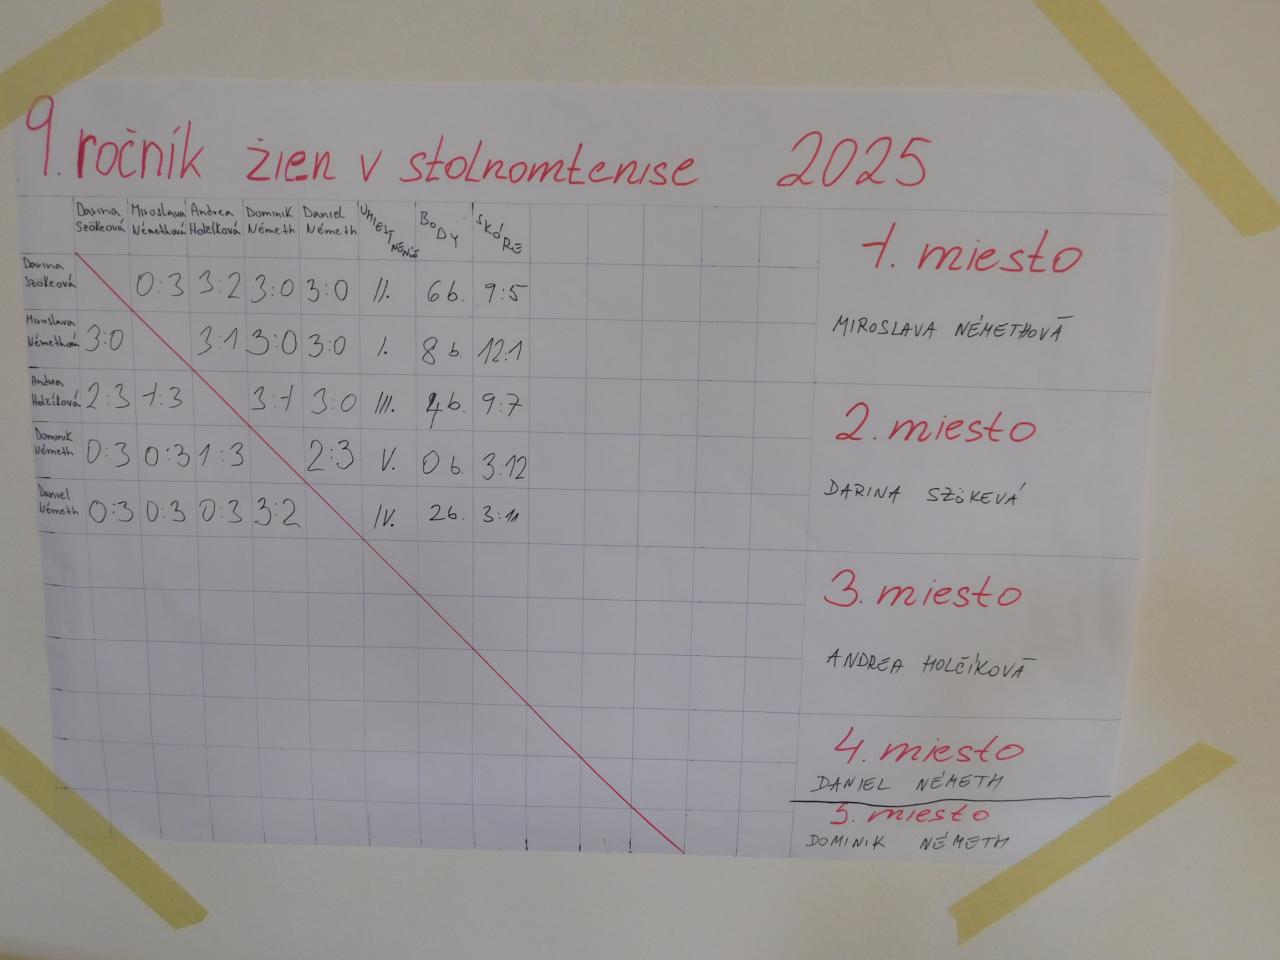 9. ročník žien v stolnomtenise 2025
Darina Szökeová Miroslava Némethová Andrea Holčíková Dominik Németh Daniel Németh UMIESTNENIE BODY SKÓRE
Darina Szökeová 0:3 3:2 3:0 3:0 II. 6b. 9:5
Miroslava Némethová 3:0 3:1 3:0 3:0 I. 8b. 12:1
Andrea Holčíková 2:3 1:3 3:1 3:0 III. 4b. 9:7
Dominik Németh 0:3 0:3 1:3 2:3 V. 0b. 3:12
Daniel Németh 0:3 0:3 0:3 3:2 IV. 2b. 3:11
1. miesto
MIROSLAVA NÉMETHOVÁ
2. miesto
DARINA SZÖKEVÁ
3. miesto
ANDREA HOLČÍKOVÁ
4. miesto
DANIEL NÉMETH
5. miesto
DOMINIK NÉMETH